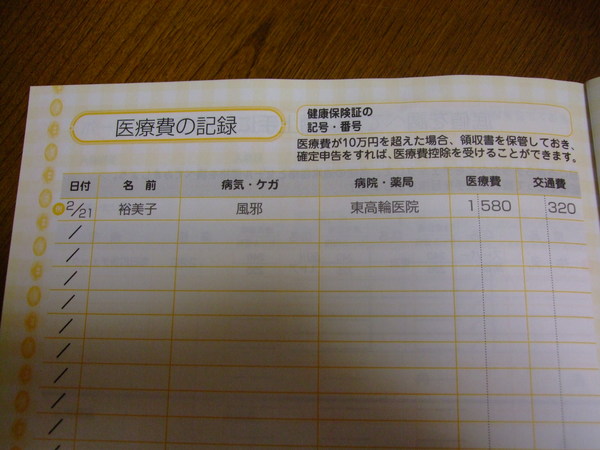 医療費の記録
健康保険証の
記号・番号
医療費が10万円を超えた場合、領収書を保管しておき、
確定申告をすれば、医療費控除を受けることができます。
日付 名 前 病気・ケガ 病院・薬局 医療費 交通費
2/21 裕美子 風邪 東高輪医院 1 580 320
/
/
/
/
/
/
/
/
/